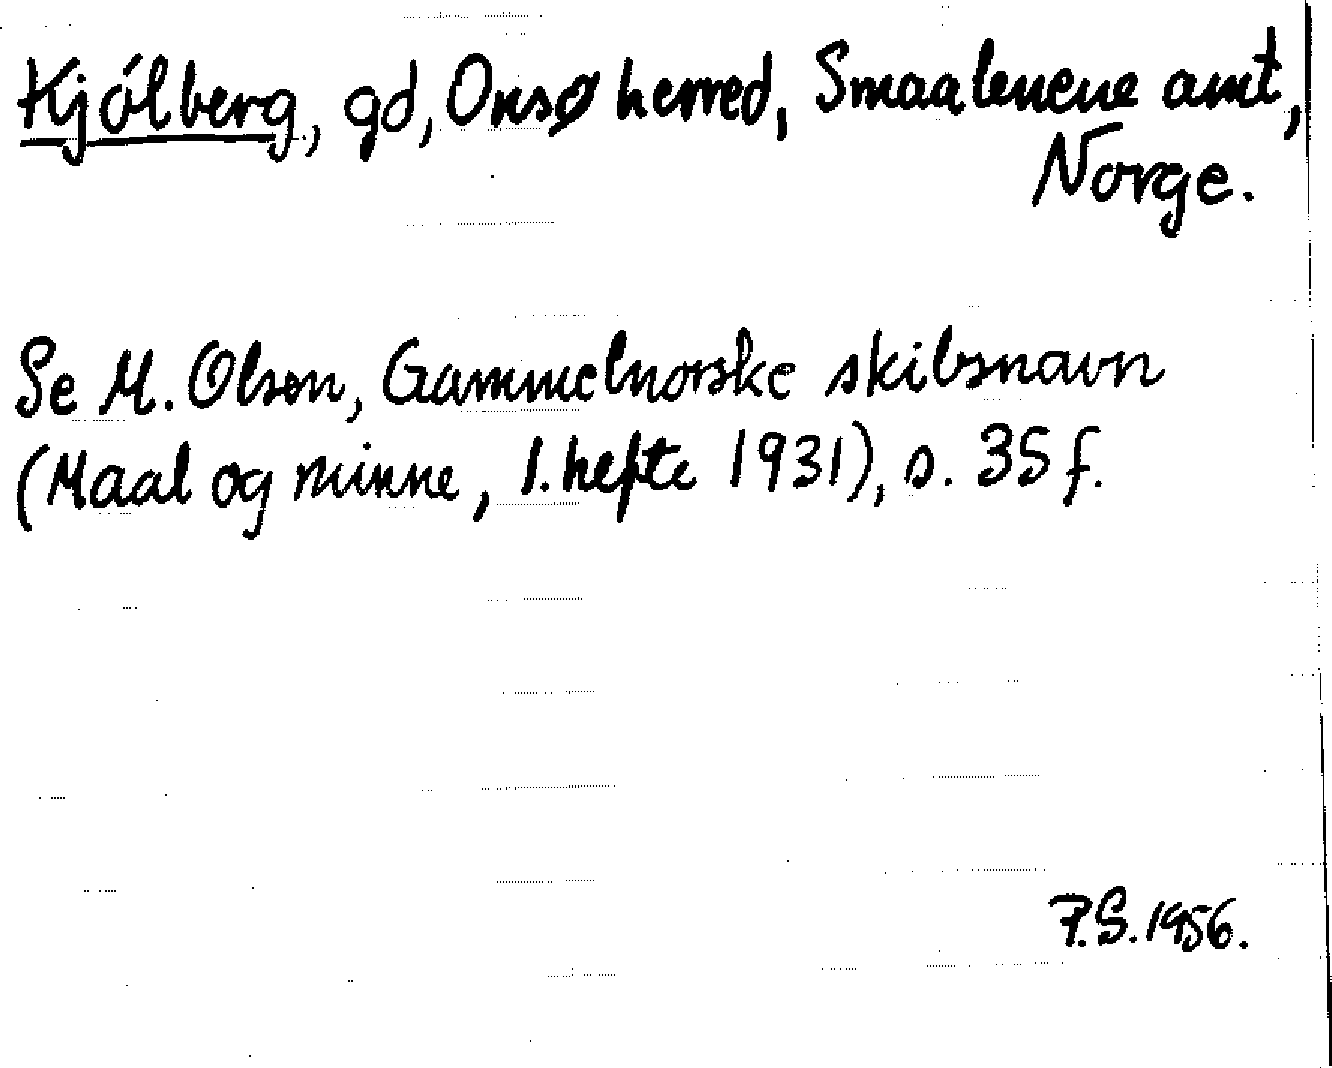 Kjólberg, gd, Onsø herred, Smaalenene amt,
Norge.
Se M. Olsen, Gammelnorske skibsnavn
(Maal og minne, 1. hefte 1931), s. 35 f.
P.S. 1956.